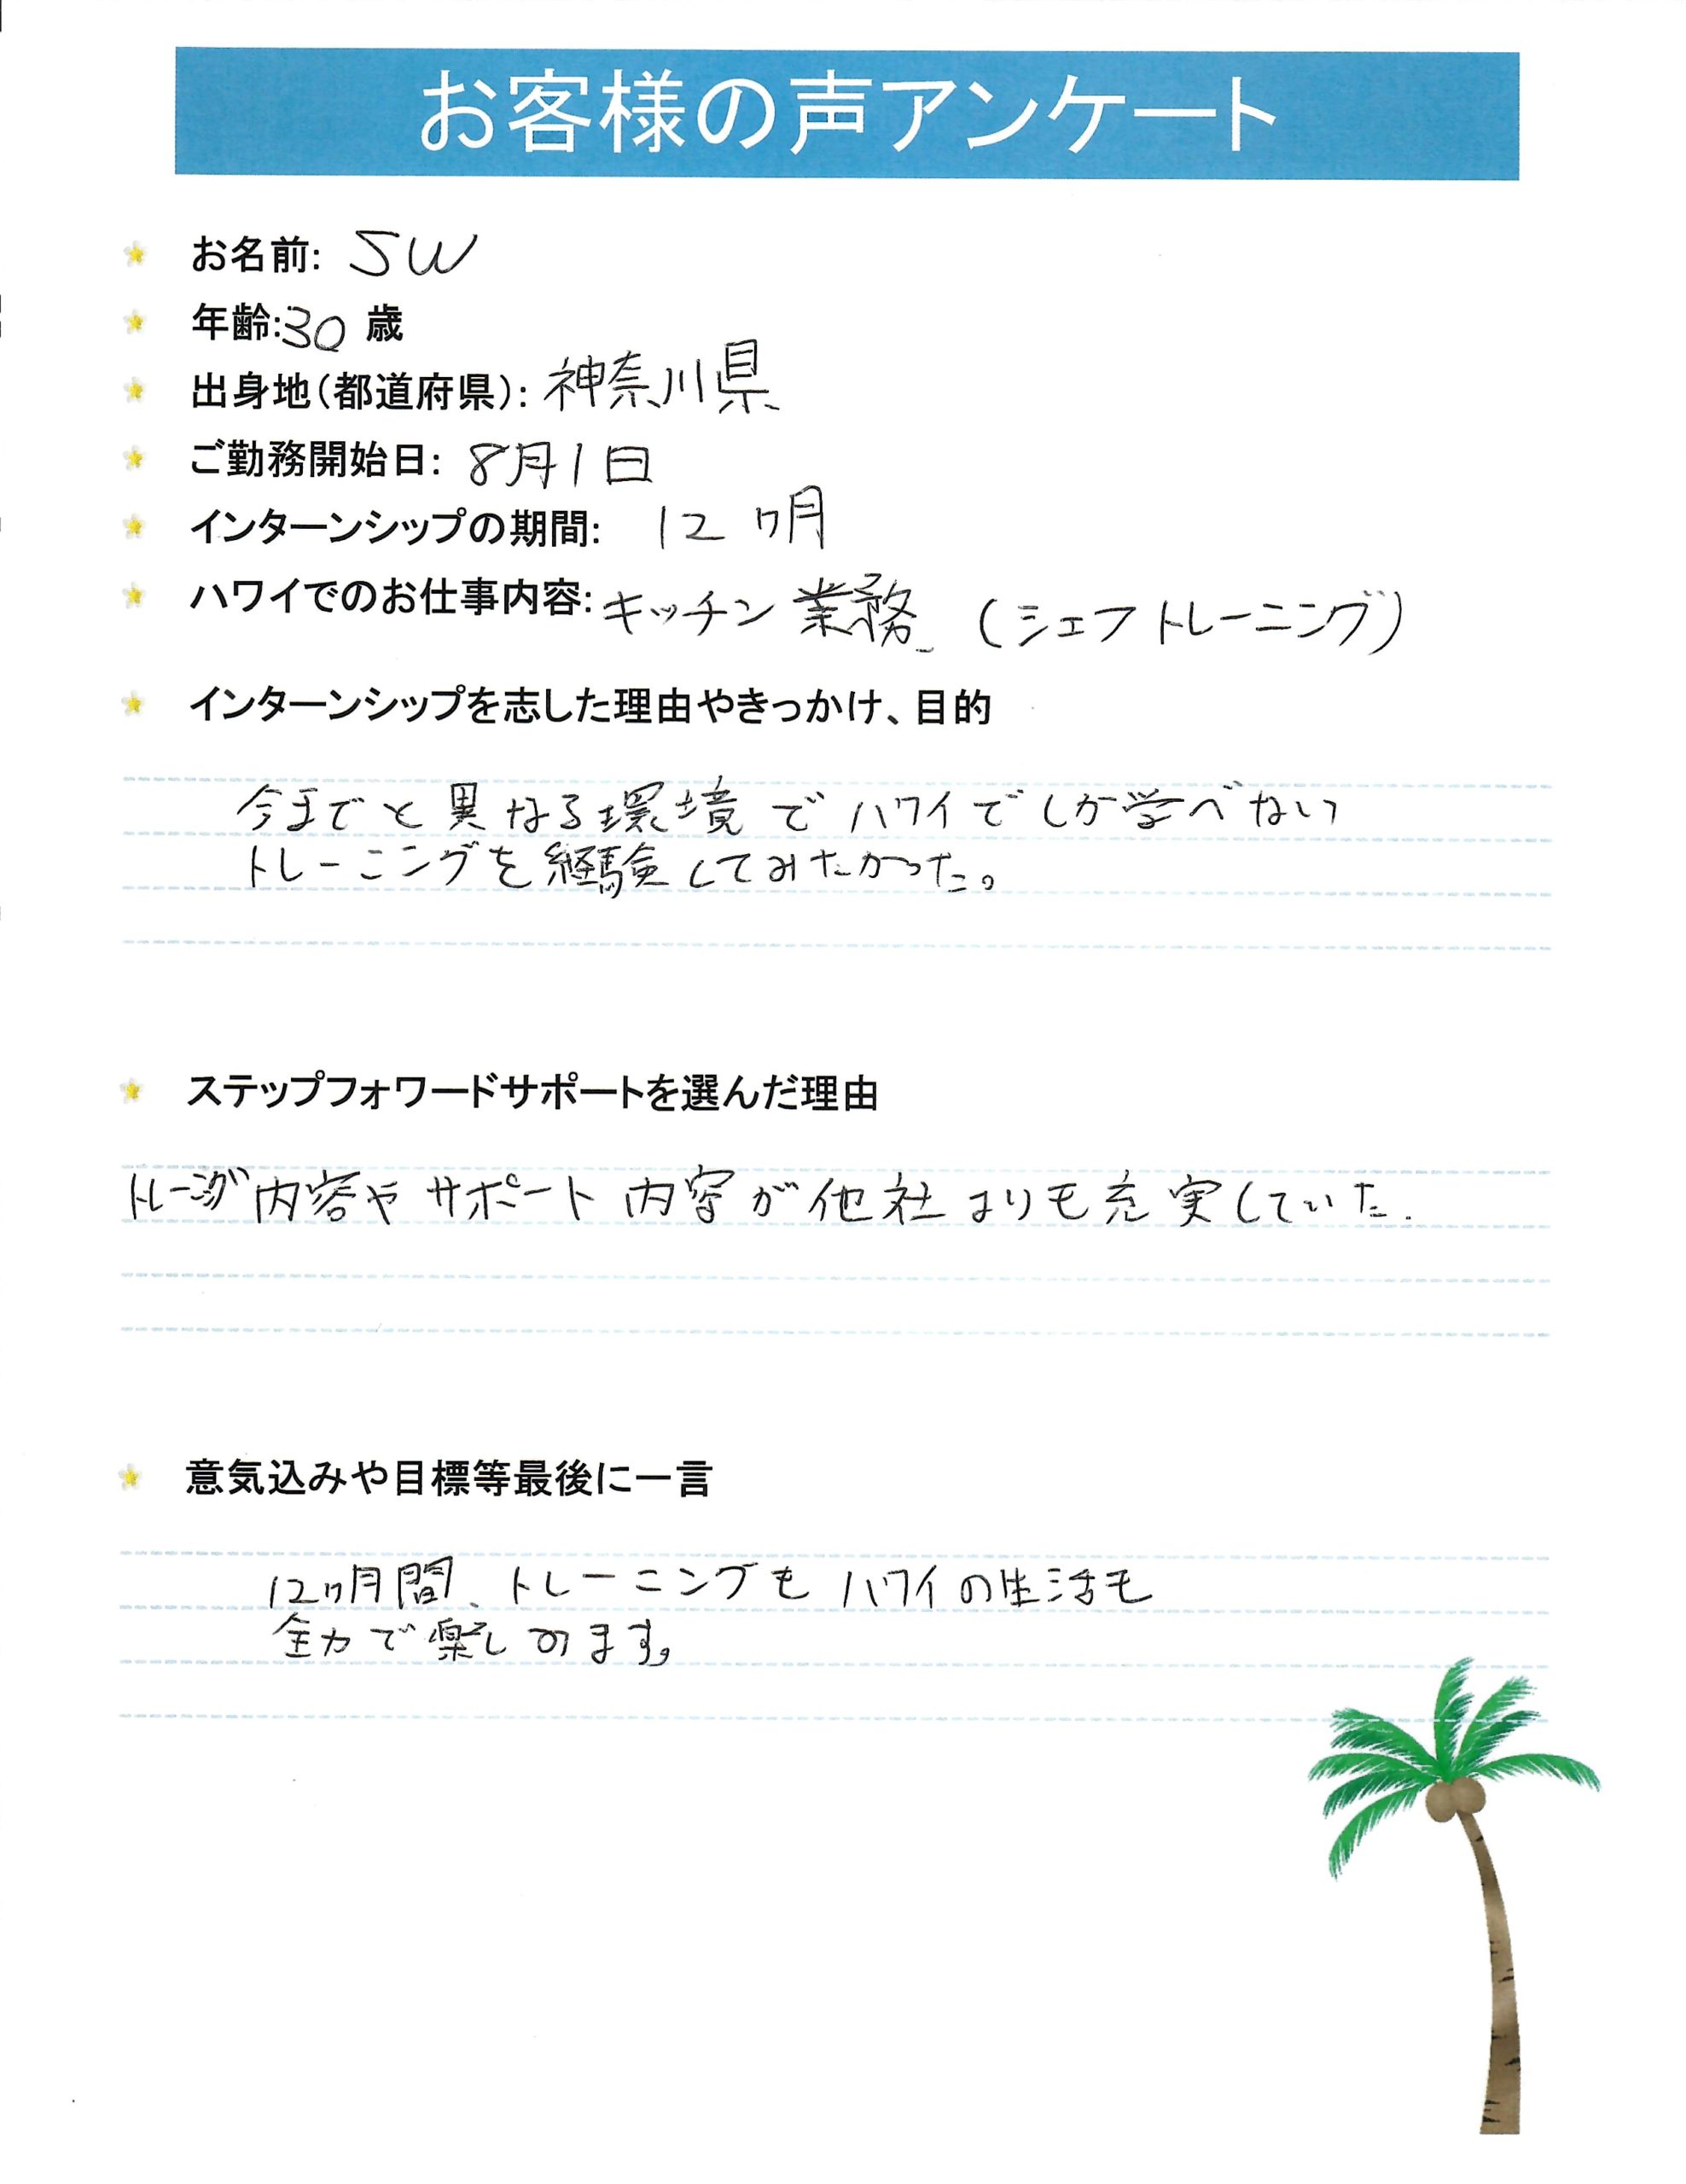 お客様の声アンケート
お名前: SW
年齢:30 歳
出身地(都道府県): 神奈川県
ご勤務開始日: 8月1日
インターンシップの期間: 12ヶ月
ハワイでのお仕事内容: キッチン業務 (シェフトレーニング)
インターンシップを志した理由やきっかけ、目的
今までと異なる環境でハワイでしか学べない
トレーニングを経験してみたかった。
ステップフォワードサポートを選んだ理由
トレーニング内容やサポート内容が他社よりも充実していた.
意気込みや目標等最後に一言
12ヶ月間、トレーニングもハワイの生活も
全力で楽しめます。